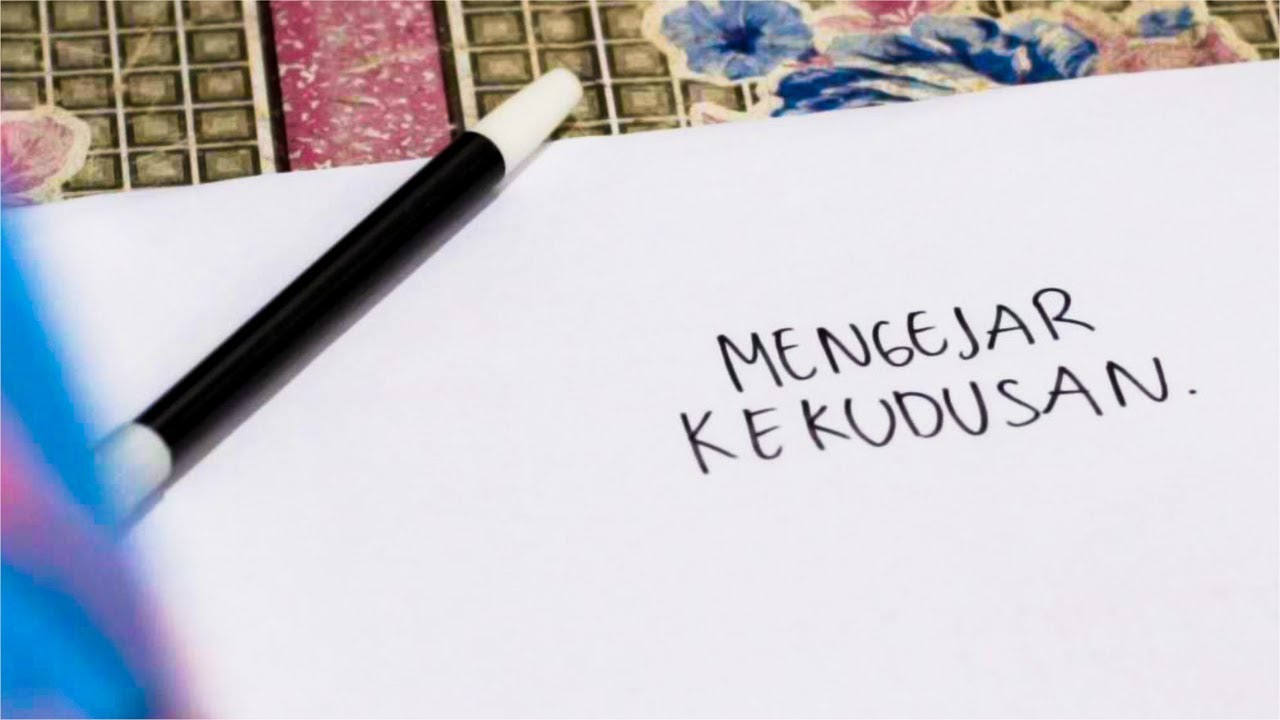 MENGEJAR
KEKUDUSAN.